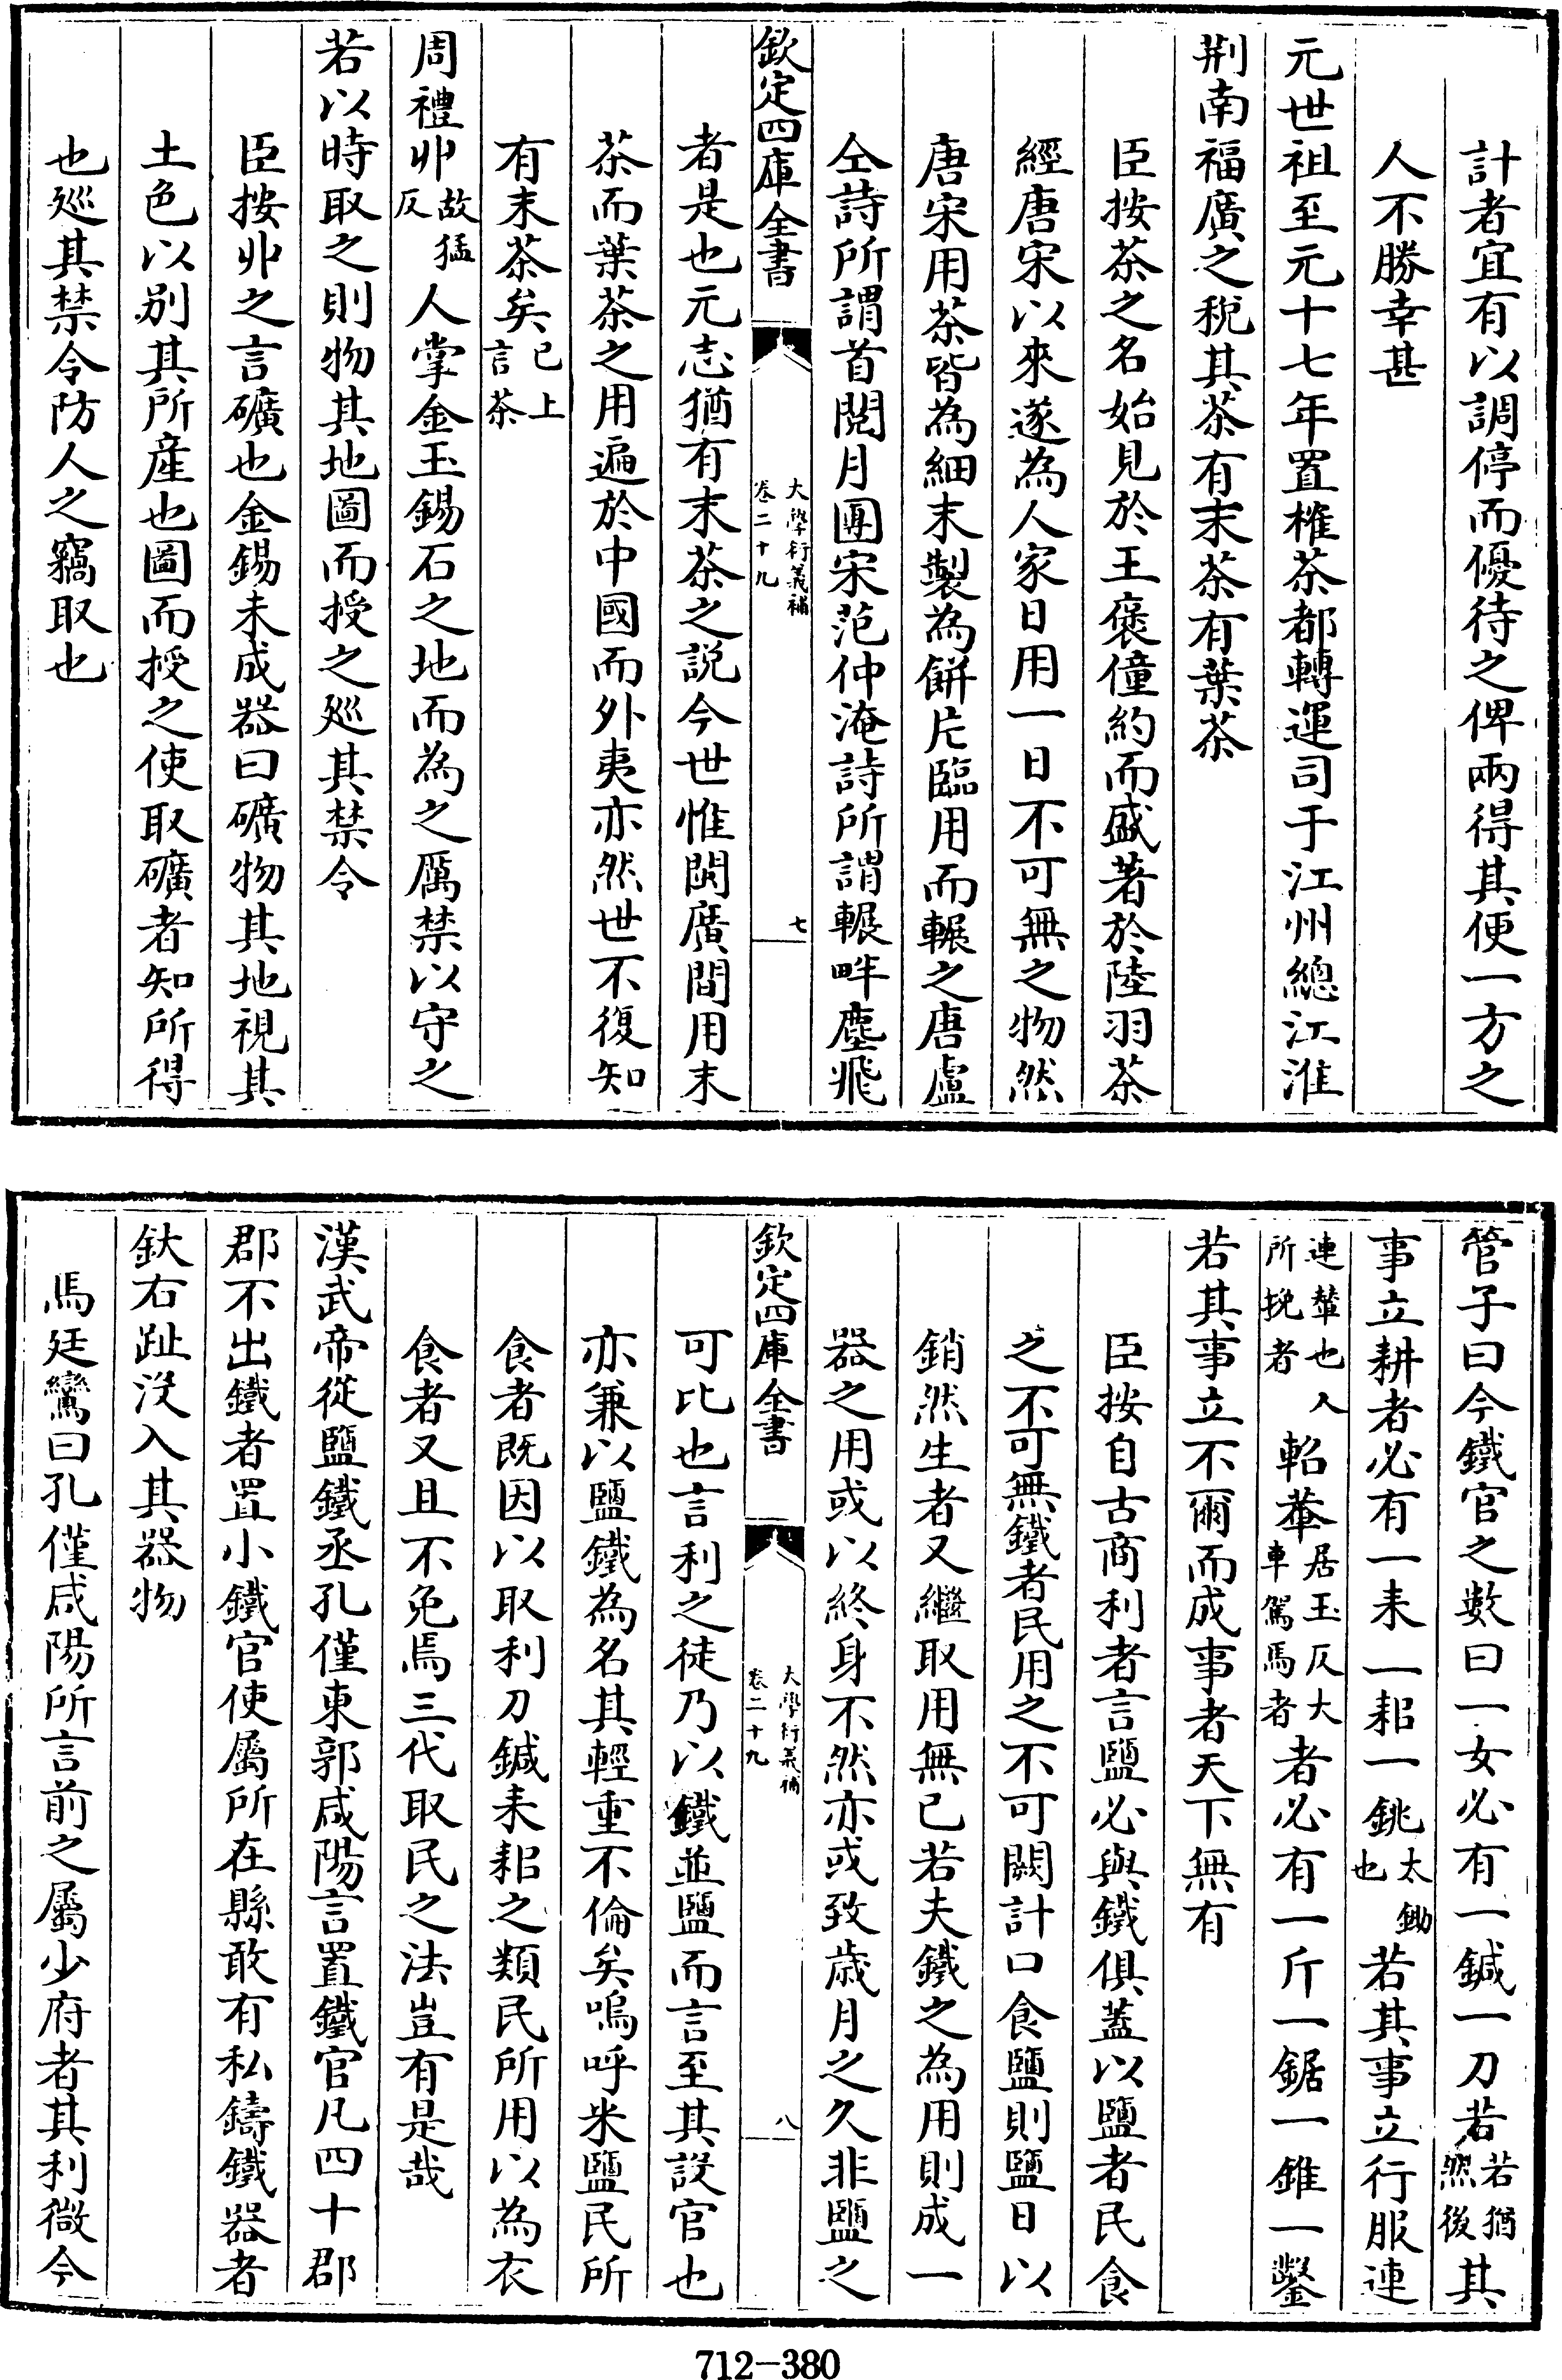 計者宜有以調停而優待之俾兩得其便一方之
人不勝幸甚
元世祖至元十七年置榷茶都轉運司于江州總江淮
荆南福廣之税其茶有末茶有葉茶
臣按茶之名始見於王褒僮約而盛著於陸羽茶
經唐宋以來遂為人家日用一日不可無之物然
唐宋用茶皆為細末製為餅片臨用而輾之唐盧
仝詩所謂首閱月團宋范仲淹詩所謂輾畔塵飛
欽定四庫全書
大學衍義補
卷二十九
七
者是也元志猶有末茶之説今世惟閩廣間用末
茶而葉茶之用遍於中國而外夷亦然世不復知
有末茶矣已上言茶
周禮丱故猛反人掌金玉錫石之地而為之厲禁以守之
若以時取之則物其地圖而授之廵其禁令
臣按丱之言礦也金錫未成器曰礦物其地視其
土色以别其所産也圖而授之使取礦者知所得
也廵其禁令防人之竊取也
管子曰今鐵官之數曰一女必有一鍼一刀若若猶然後其
事立耕者必有一耒一耜一銚太鋤也若其事立行服連
連輦也人所挽者軺輂居玉反大車駕馬者者必有一斤一鋸一錐一鑿
若其事立不爾而成事者天下無有
臣按自古商利者言鹽必與鐵俱蓋以鹽者民食
之不可無鐵者民用之不可闕計口食鹽則鹽日以
銷然生者又繼取用無已若夫鐵之為用則成一
器之用或以終身不然亦或致歳月之久非鹽之
欽定四庫全書
大學衍義補
卷二十九
八
可比也言利之徒乃以鐵並鹽而言至其設官也
亦兼以鹽鐵為名其輕重不倫矣嗚呼米鹽民所
食者既因以取利刀鍼耒耜之類民所用以為衣
食者又且不免焉三代取民之法豈有是哉
漢武帝從鹽鐵丞孔僅東郭咸陽言置鐵官凡四十郡
郡不出鐵者置小鐵官使屬所在縣敢有私鑄鐵器者
釱右趾没入其器物
馬廷鸞曰孔僅咸陽所言前之屬少府者其利微今
712-380